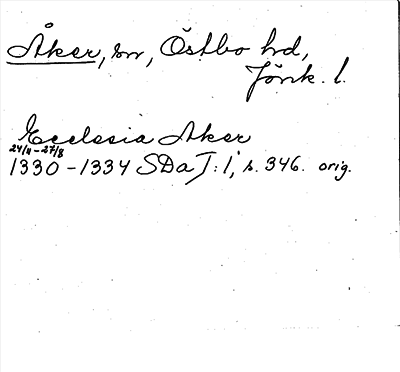 Åker, sn, Östbo hd,
Jönk. l.
Ecclesia Aker
24/11-27/8
1330-1334 SDa I:1, s. 346. orig.